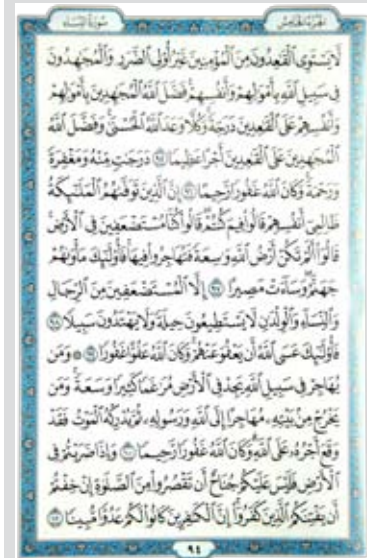 الجزء الخامس سورة النساء
لَّا يَسْتَوِى ٱلْقَٰعِدُونَ مِنَ ٱلْمُؤْمِنِينَ غَيْرُ أُو۟لِى ٱلضَّرَرِ وَٱلْمُجَٰهِدُونَ
فِى سَبِيلِ ٱللَّهِ بِأَمْوَٰلِهِمْ وَأَنفُسِهِمْ فَضَّلَ ٱللَّهُ ٱلْمُجَٰهِدِينَ بِأَمْوَٰلِهِمْ
وَأَنفُسِهِمْ عَلَى ٱلْقَٰعِدِينَ دَرَجَةً وَكُلًّا وَعَدَ ٱللَّهُ ٱلْحُسْنَىٰ وَفَضَّلَ ٱللَّهُ
ٱلْمُجَٰهِدِينَ عَلَى ٱلْقَٰعِدِينَ أَجْرًا عَظِيمًا ٩٥ دَرَجَٰتٍ مِّنْهُ وَمَغْفِرَةً
وَرَحْمَةً وَكَانَ ٱللَّهُ غَفُورًا رَّحِيمًا ٩٦ إِنَّ ٱلَّذِينَ تَوَفَّىٰهُمُ ٱلْمَلَٰٓئِكَةُ
ظَالِمِىٓ أَنفُسِهِمْ قَالُوا۟ فِيمَ كُنتُمْ قَالُوا۟ كُنَّا مُسْتَضْعَفِينَ فِى ٱلْأَرْضِ
قَالُوٓا۟ أَلَمْ تَكُنْ أَرْضُ ٱللَّهِ وَٰسِعَةً فَتُهَاجِرُوا۟ فِيهَا فَأُو۟لَٰٓئِكَ مَأْوَىٰهُمْ
جَهَنَّمُ وَسَآءَتْ مَصِيرًا ٩٧ إِلَّا ٱلْمُسْتَضْعَفِينَ مِنَ ٱلرِّجَالِ
وَٱلنِّسَآءِ وَٱلْوِلْدَٰنِ لَا يَسْتَطِيعُونَ حِيلَةً وَلَا يَهْتَدُونَ سَبِيلًا ٩٨
فَأُو۟لَٰٓئِكَ عَسَى ٱللَّهُ أَن يَعْفُوَ عَنْهُمْ وَكَانَ ٱللَّهُ عَفُوًّا غَفُورًا ٩٩ ۞ وَمَن
يُهَاجِرْ فِى سَبِيلِ ٱللَّهِ يَجِدْ فِى ٱلْأَرْضِ مُرَٰغَمًا كَثِيرًا وَسَعَةً وَمَن
يَخْرُجْ مِنۢ بَيْتِهِۦ مُهَاجِرًا إِلَى ٱللَّهِ وَرَسُولِهِۦ ثُمَّ يُدْرِكْهُ ٱلْمَوْتُ فَقَدْ
وَقَعَ أَجْرُهُۥ عَلَى ٱللَّهِ وَكَانَ ٱللَّهُ غَفُورًا رَّحِيمًا ١٠٠ وَإِذَا ضَرَبْتُمْ فِى
ٱلْأَرْضِ فَلَيْسَ عَلَيْكُمْ جُنَاحٌ أَن تَقْصُرُوا۟ مِنَ ٱلصَّلَوٰةِ إِنْ خِفْتُمْ
أَن يَفْتِنَكُمُ ٱلَّذِينَ كَفَرُوٓا۟ إِنَّ ٱلْكَٰفِرِينَ كَانُوا۟ لَكُمْ عَدُوًّا مُّبِينًا ١٠١
٩٤